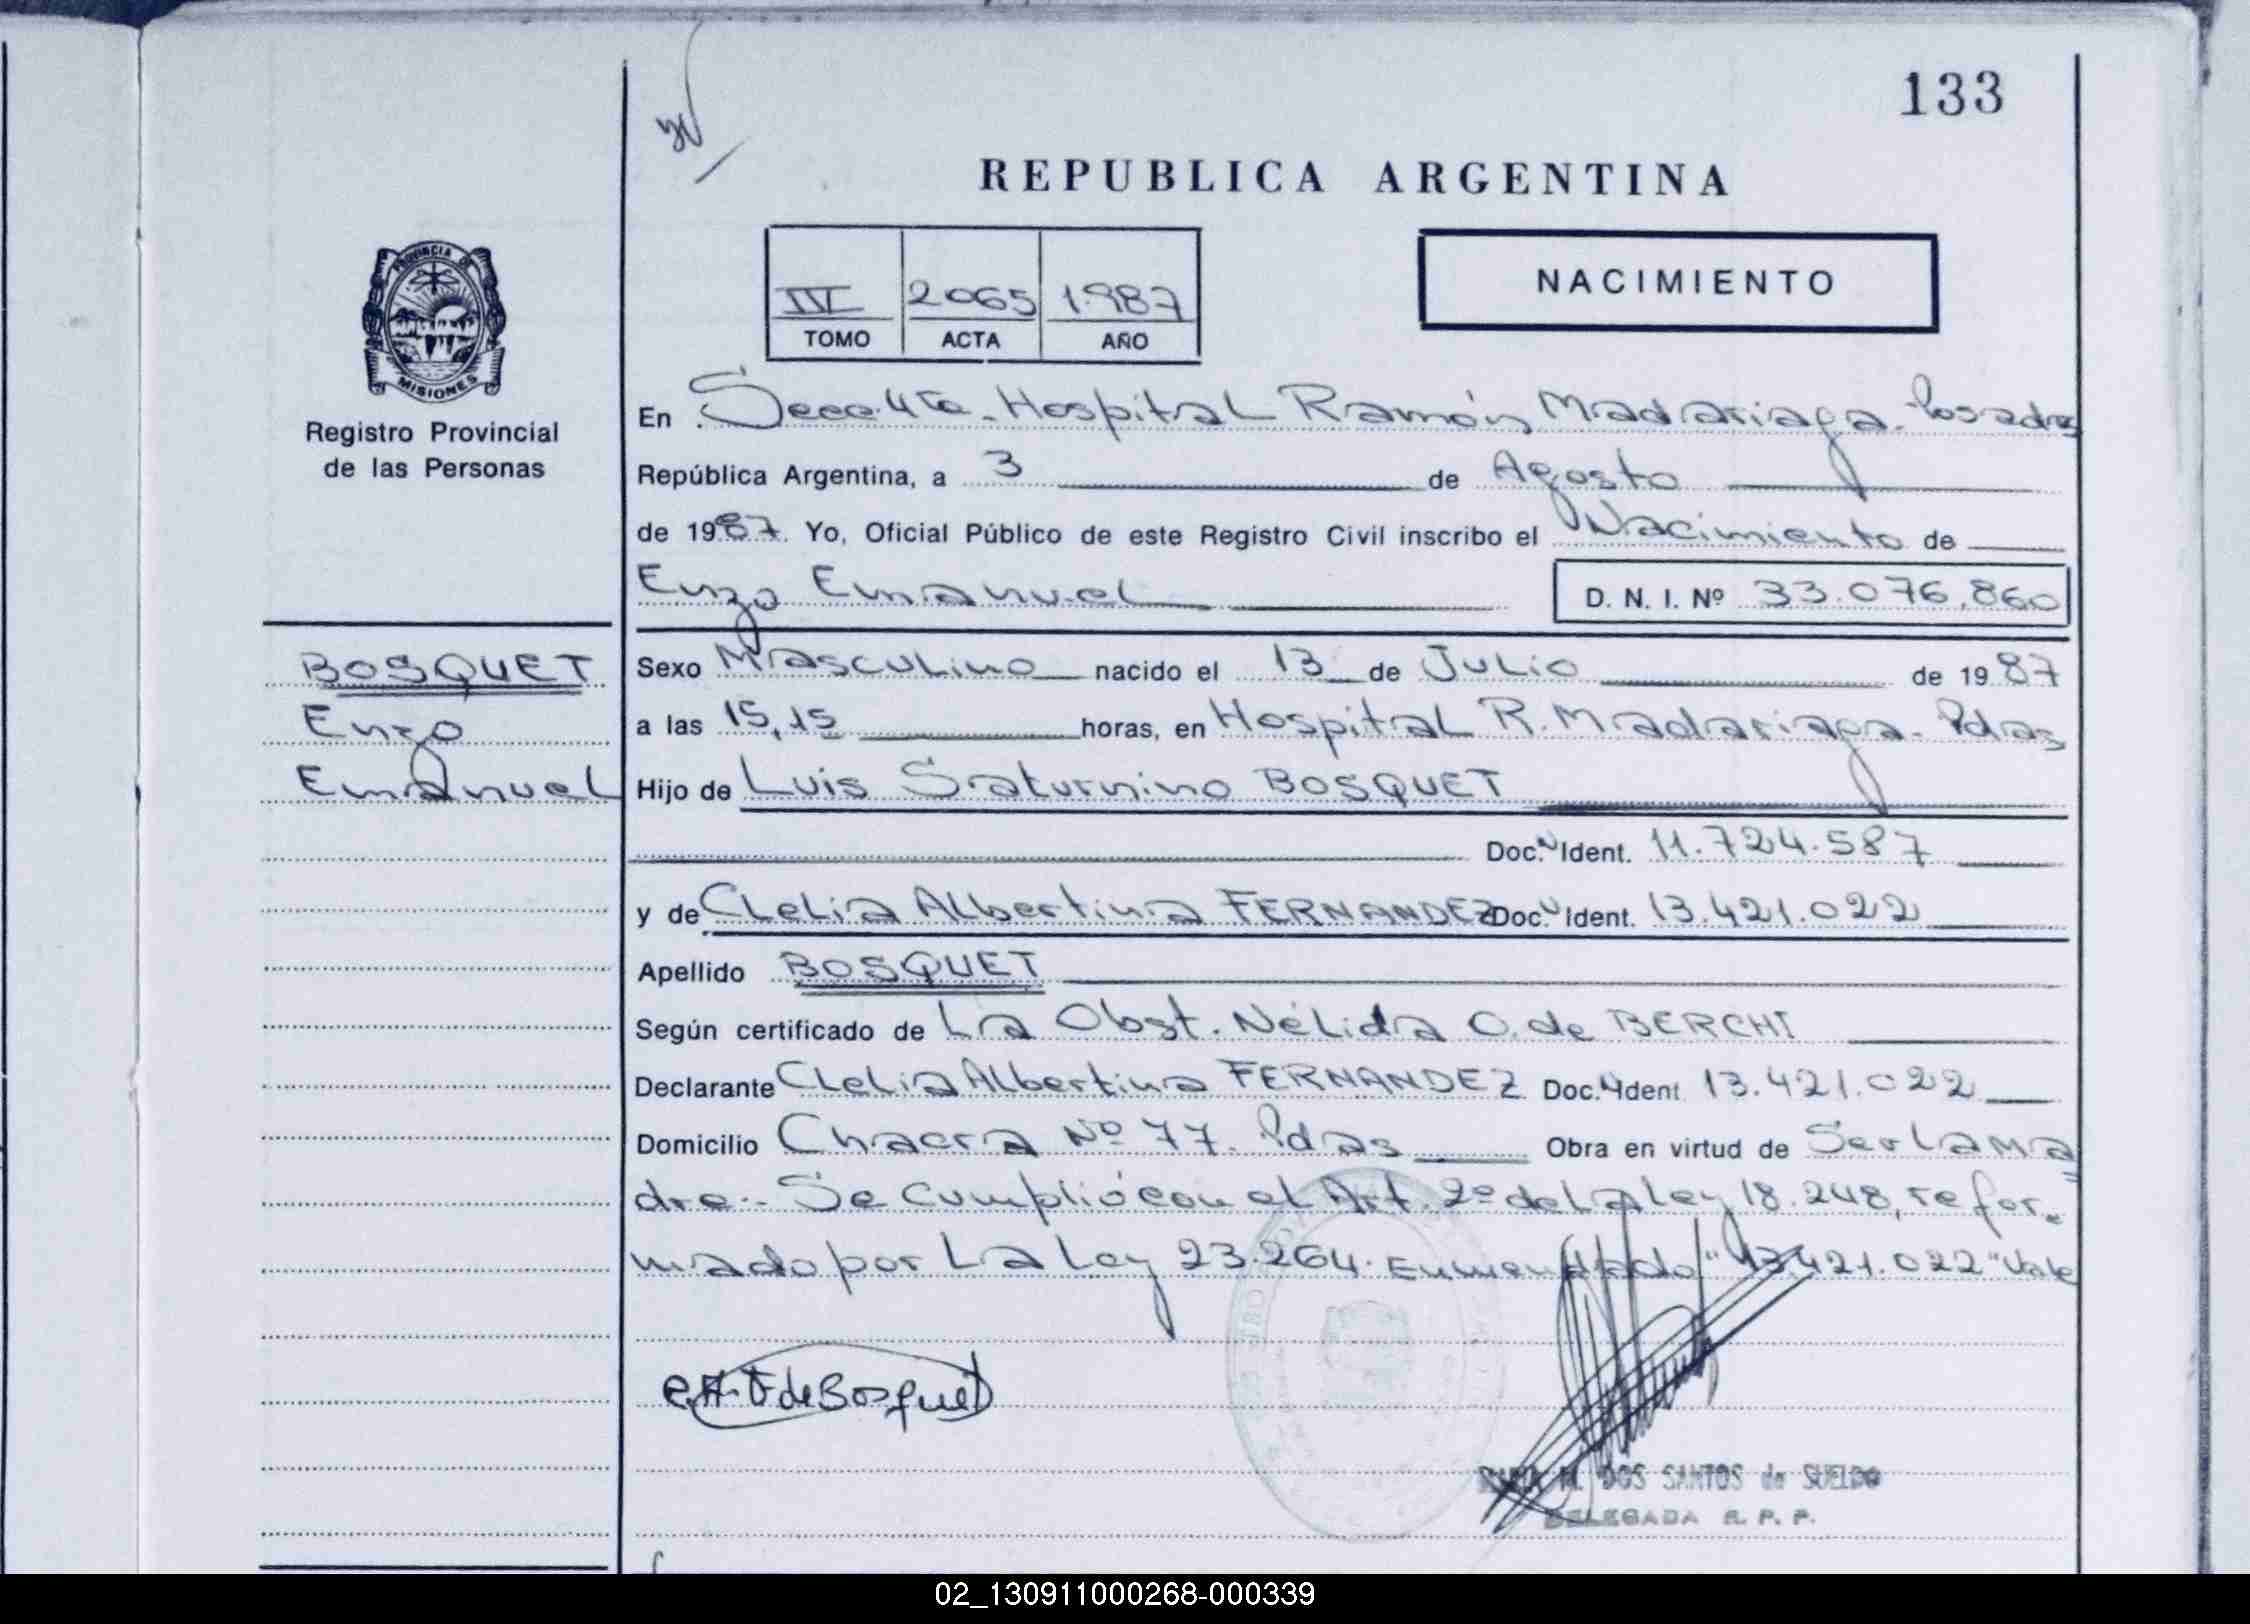 133
REPUBLICA ARGENTINA
PROVINCIA DE
MISIONES
Registro Provincial
de las Personas
III 2065 1.987
TOMO ACTA AÑO
NACIMIENTO
En Secc. 4ta. Hospital Ramón Madariaga. Posadas
República Argentina, a 3 de Agosto
de 1987. Yo, Oficial Público de este Registro Civil inscribo el Nacimiento de
Enzo Emanuel D. N. I. Nº 33.076.860
BOSQUET
Enzo
Emanuel
Sexo Masculino nacido el 13 de Julio de 1987
a las 15,15 horas, en Hospital R. Madariaga. Pdas
Hijo de Luis Saturnino BOSQUET
Doc. N Ident. 11.724.587
y de Clelia Albertina FERNANDEZ Doc. N Ident. 13.421.022
Apellido BOSQUET
Según certificado de La Obst. Nélida O. de BERCHI
Declarante Clelia Albertina FERNANDEZ Doc. N Ident. 13.421.022
Domicilio Chacra Nº 77. Pdas Obra en virtud de Ser La Ma
dre.- Se cumplió con el Art. 2º de La Ley 18.248, refor-
mado por La Ley 23.264. Enmendado "13.421.022" Vale
C.A. F de Bosquet
M. DOS SANTOS de SUELDO
DELEGADA R. P. P.
02_130911000268-000339